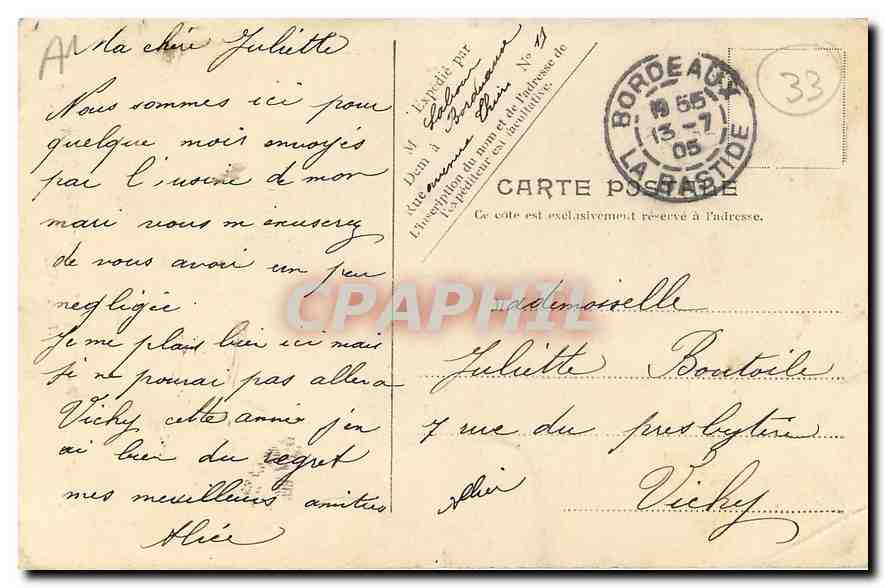 Ma chère Juliette
Nous sommes ici pour
quelque mois envoyés
par l'usine de mon
mari vous m'excuserez
de vous avoir un peu
negligée.
Je me plais bien ici mais
je ne pourai pas aller a
Vichy cette année j'en
ai bien du regret
mes meilleurs amities
Alice
Expédié par
M
Dem à Bordeaux
Rue avenue Thiers No 11
L'inscription du nom et de l'adresse de
l'expéditeur est facultative.
BORDEAUX
19 55
13-7
05
LA BASTIDE
33
CARTE POSTALE
Ce côté est exclusivement réservé à l'adresse.
CPAPHIL
Mademoiselle
Juliette Boutoile
7 rue du presbytère
Vichy
Allier